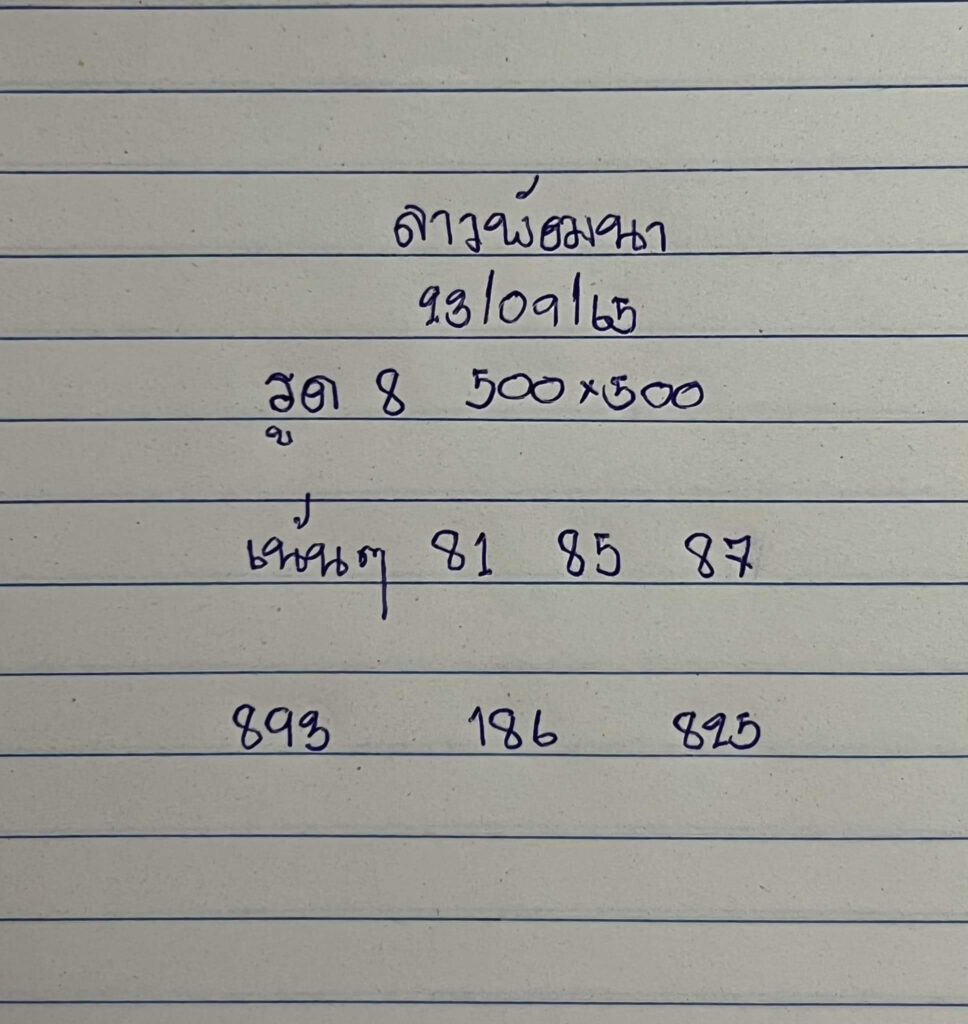 ลาวพัฒนา
23/09/65
รูด 8 500×500
เน้นๆ 81 85 87
823 186 825